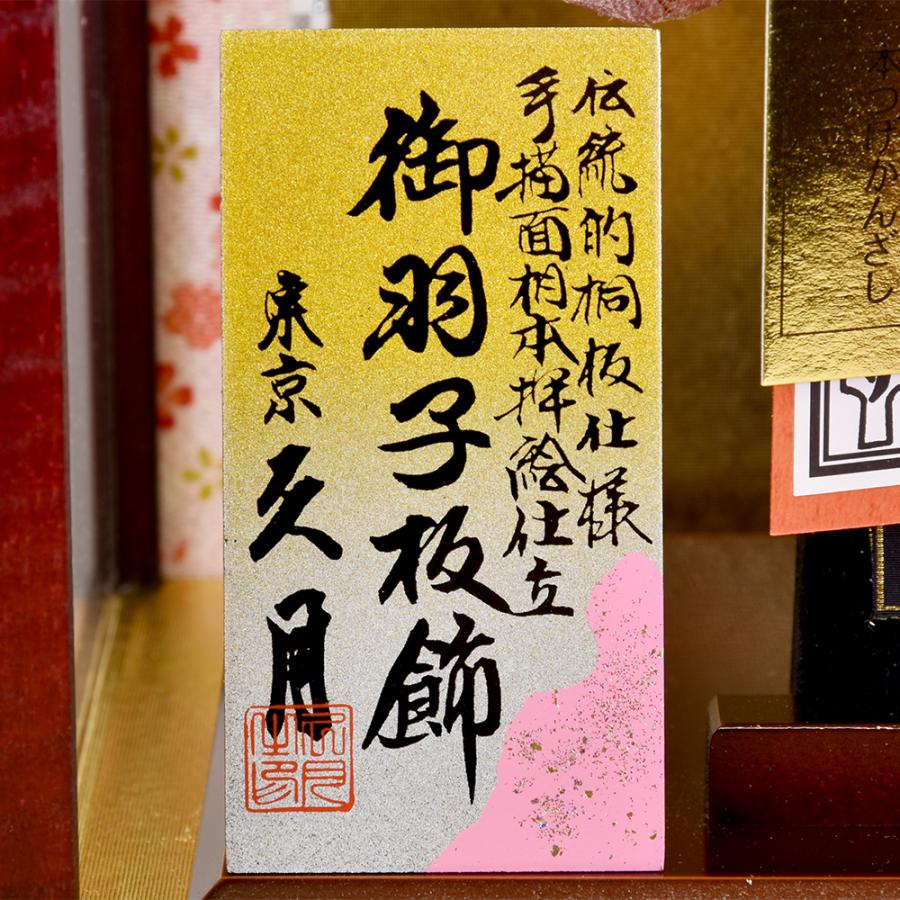 伝統的桐板仕様
手描面相本押絵仕立
御羽子板飾
東京久月
本つげかんざし